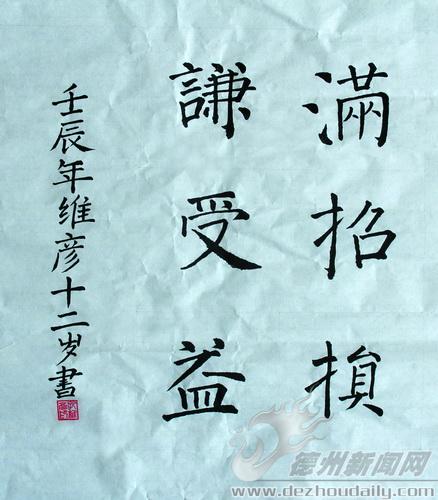 滿招損
謙受益
壬辰年维彦十二岁書
德州新闻网
www.dezhoudaily.com